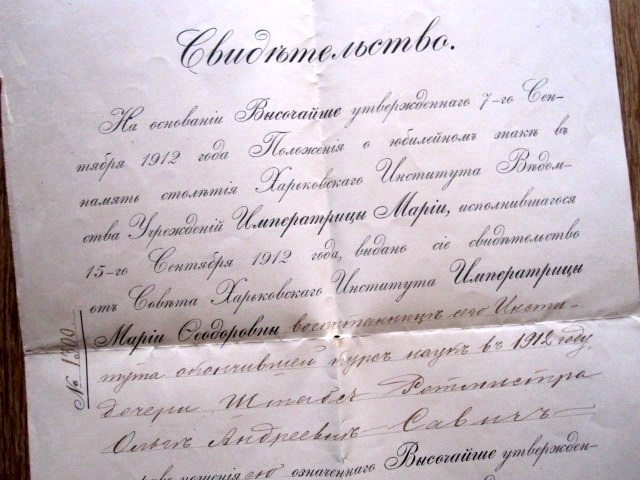 Свидѣтельство.
На основаніи Высочайше утвержденнаго 7-го Сен-
тября 1912 года Положенія о юбилейномъ знакѣ въ
память столѣтія Харьковскаго Института Вѣдом-
ства Учрежденій Императрицы Маріи, исполнившагося
15-го Сентября 1912 года, выдано сіе свидѣтельство
отъ Совѣта Харьковскаго Института Императрицы
Маріи Ѳеодоровны воспитанницѣ его Инсти-
тута окончившей курсъ наукъ въ 1912 году,
дочери Штабсъ Ротмистра
Ольгѣ Андреевнѣ Савичъ
ношенія ею означеннаго Высочайше утвержден-
№ 1300